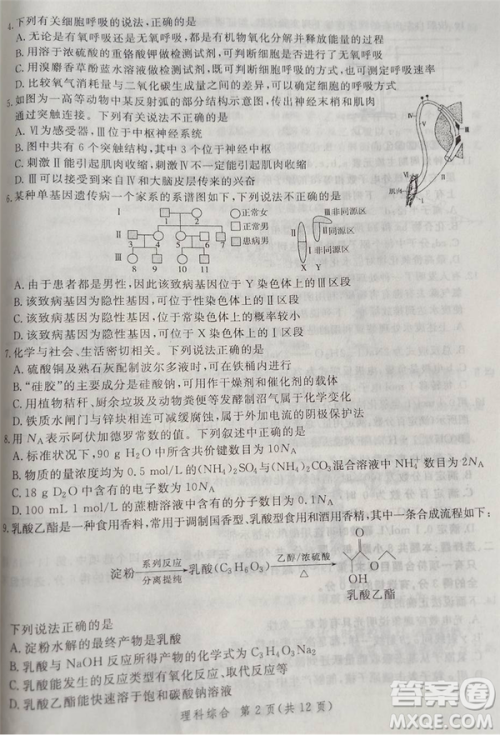 4.下列有关细胞呼吸的说法,正确的是
A.无论是有氧呼吸还是无氧呼吸,都是有机物氧化分解并释放能量的过程
B.用溶于浓硫酸的重铬酸钾做检测试剂,可判断细胞是否进行了无氧呼吸
C.用溴麝香草酚蓝水溶液做检测试剂,可判断细胞的呼吸方式
D.比较氧气消耗量与二氧化碳生成量之间的差异,可得知呼吸速率
5.如图为一高等动物中某反射弧的部分结构示意图,传出神经末梢和肌肉
通过突触连接。下列有关说法不正确的是
A.Ⅵ为感受器,Ⅲ位于中枢神经系统
B.图中共有6个突触结构,其中3个位于中枢神经系统
C.刺激Ⅱ能引起肌肉收缩,刺激Ⅳ不能引起肌肉收缩
D.Ⅲ可以接受到来自Ⅳ和大脑皮层的兴奋
肌肉
6.某种单基因遗传病一个家系的系谱图如下,下列说法不正确的是
Ⅰ 1 2
Ⅱ 3 4 5 6 7
Ⅲ 8 9 10 11
正常女
正常男
患病男
Ⅲ非同源区
Ⅱ同源区
Ⅰ非同源区
X Y
A.由于患者都是男性,因此该致病基因可能位于Y染色体上的Ⅲ区段
B.该致病基因为隐性基因,可位于常染色体上的Ⅰ区段
C.该致病基因为隐性基因,位于常染色体上的概率较小
D.该致病基因为隐性基因,可位于X染色体上的Ⅰ区段
7.化学与社会、生活密切相关。下列说法正确的是
A.硫酸铜及熟石灰配制波尔多液时,可在铁桶内进行
B.“硅胶”的主要成分是硅酸钠,可用作干燥剂和催化剂的载体
C.用植物秸秆、厨余垃圾等发酵制沼气属于化学变化
D.铁质水闸门与锌块相连可减缓腐蚀,属于外加电流的阴极保护法
8.用NA表示阿伏加德罗常数的值。下列叙述中正确的是
A.标准状况下,90 g H2O中氢键数为10NA
B.物质的量浓度均为0.5 mol/L的(NH4)2SO4与(NH4)2CO3混合溶液中NH4+数目为2NA
C.18 g D2O中含有的电子数为10NA
D.100 mL 1 mol/L的蔗糖溶液中含有的分子数为0.1NA
9.乳酸乙酯是一种食用香料,常用于调制国香型、乳酸型食用香精和酒用香精,其一种合成流程如下:
淀粉 系列反应 分离提纯 乳酸(C3H6O3) 乙醇/浓硫酸 △ O O OH
乳酸乙酯
下列说法正确的是
A.淀粉水解的最终产物是乳酸
B.乳酸与NaOH反应所得产物的化学式为C3H4O3Na2
C.乳酸能发生的反应类型有氧化反应、取代反应等
D.乳酸乙酯能快速溶于饱和碳酸钠溶液
理科综合 第2页(共12页)